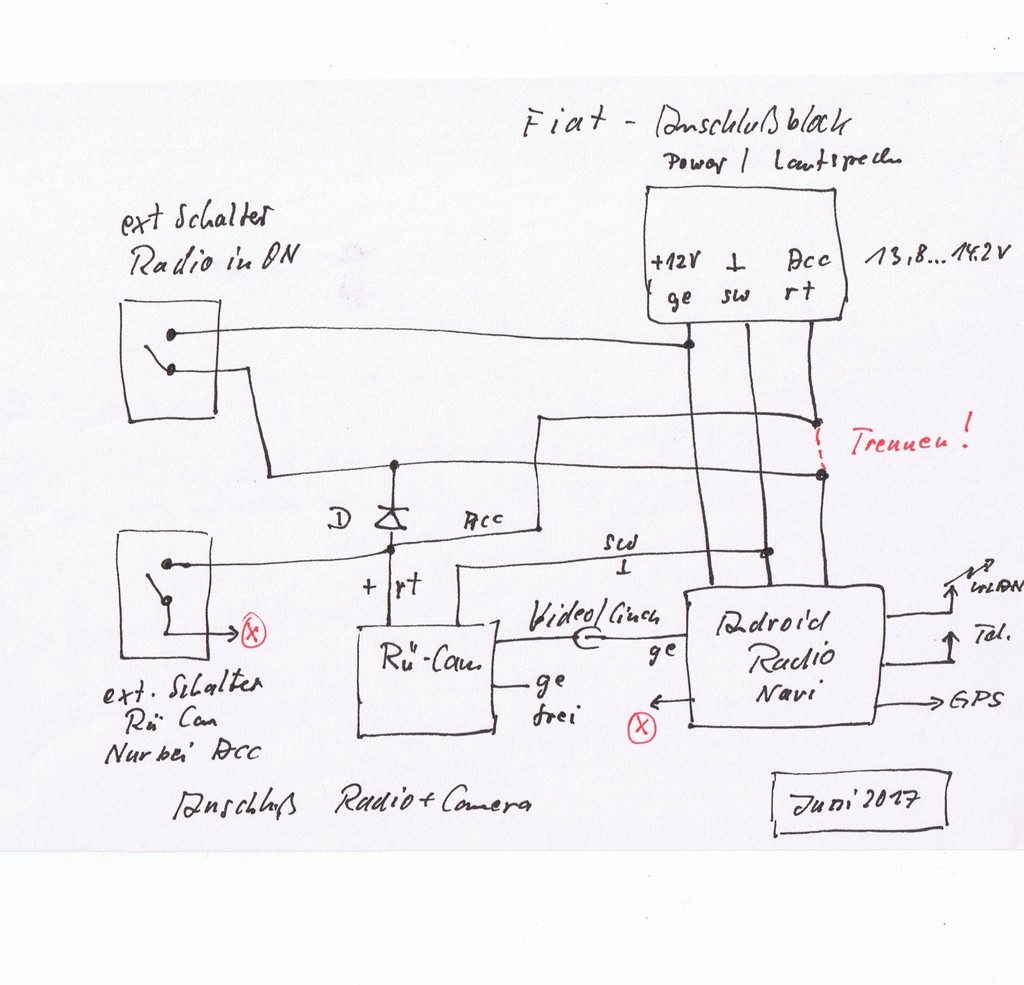 Fiat - Anschlußblock
Power / Lautsprech
ext Schalter
Radio in ON
+12V ⊥ Acc
ge sw rt
13,8...14.2V
Trennen!
D
Acc
sw
⊥
+ rt
Video/Cinch
ge
Rü-Cam
ge
frei
Adroid
Radio
Navi
WLAN
Tel.
GPS
X
X
ext. Schalter
Rü Cam
Nur bei Acc
Anschluß Radio+Camera
Juni 2017